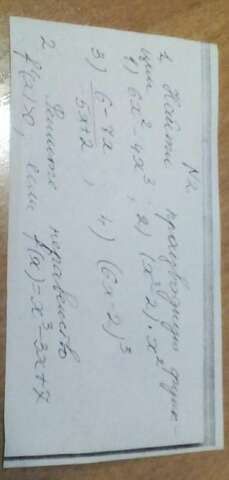 №2
1. Найти производную функ-
ции 1) 6x² - 4x³ ; 2) (x³-2)·x²
3) 6-7x / 5x+2 ; 4) (6x-2)³
2. Решите неравенство
f'(x)>0, если f(x)=x³-3x+7